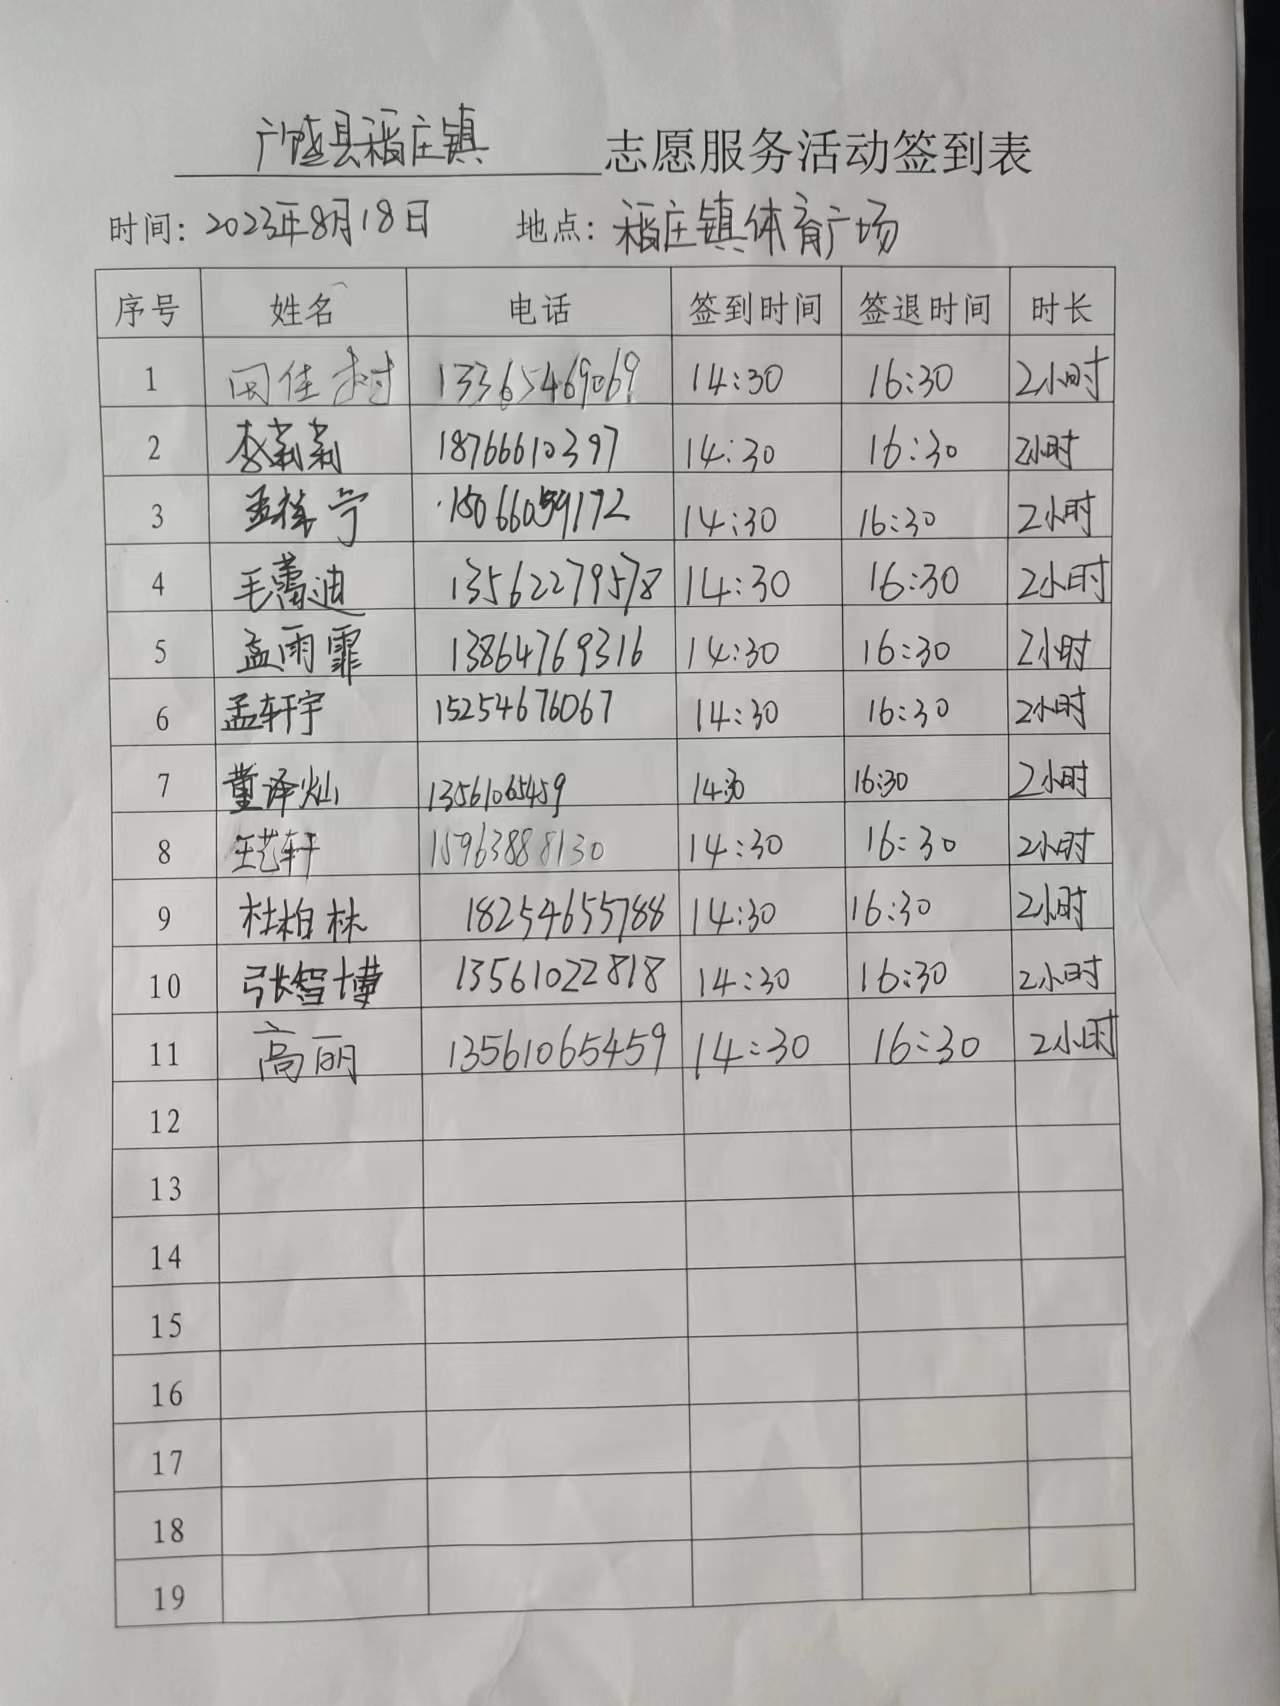 广饶县稻庄镇 志愿服务活动签到表
时间: 2023年8月18日 地点: 稻庄镇体育广场
序号 姓名 电话 签到时间 签退时间 时长
1 田佳树 13365469069 14:30 16:30 2小时
2 李莉莉 18766610397 14:30 16:30 2小时
3 宁 15066059172 14:30 16:30 2小时
4 毛蕾迪 13562279578 14:30 16:30 2小时
5 孟雨霏 13864769316 14:30 16:30 2小时
6 孟轩宇 15254676067 14:30 16:30 2小时
7 董译灿 13561065459 14:30 16:30 2小时
8 王艺轩 15963888130 14:30 16:30 2小时
9 杜柏林 18254655788 14:30 16:30 2小时
10 张智博 13561022818 14:30 16:30 2小时
11 高丽 13561065459 14:30 16:30 2小时
12
13
14
15
16
17
18
19